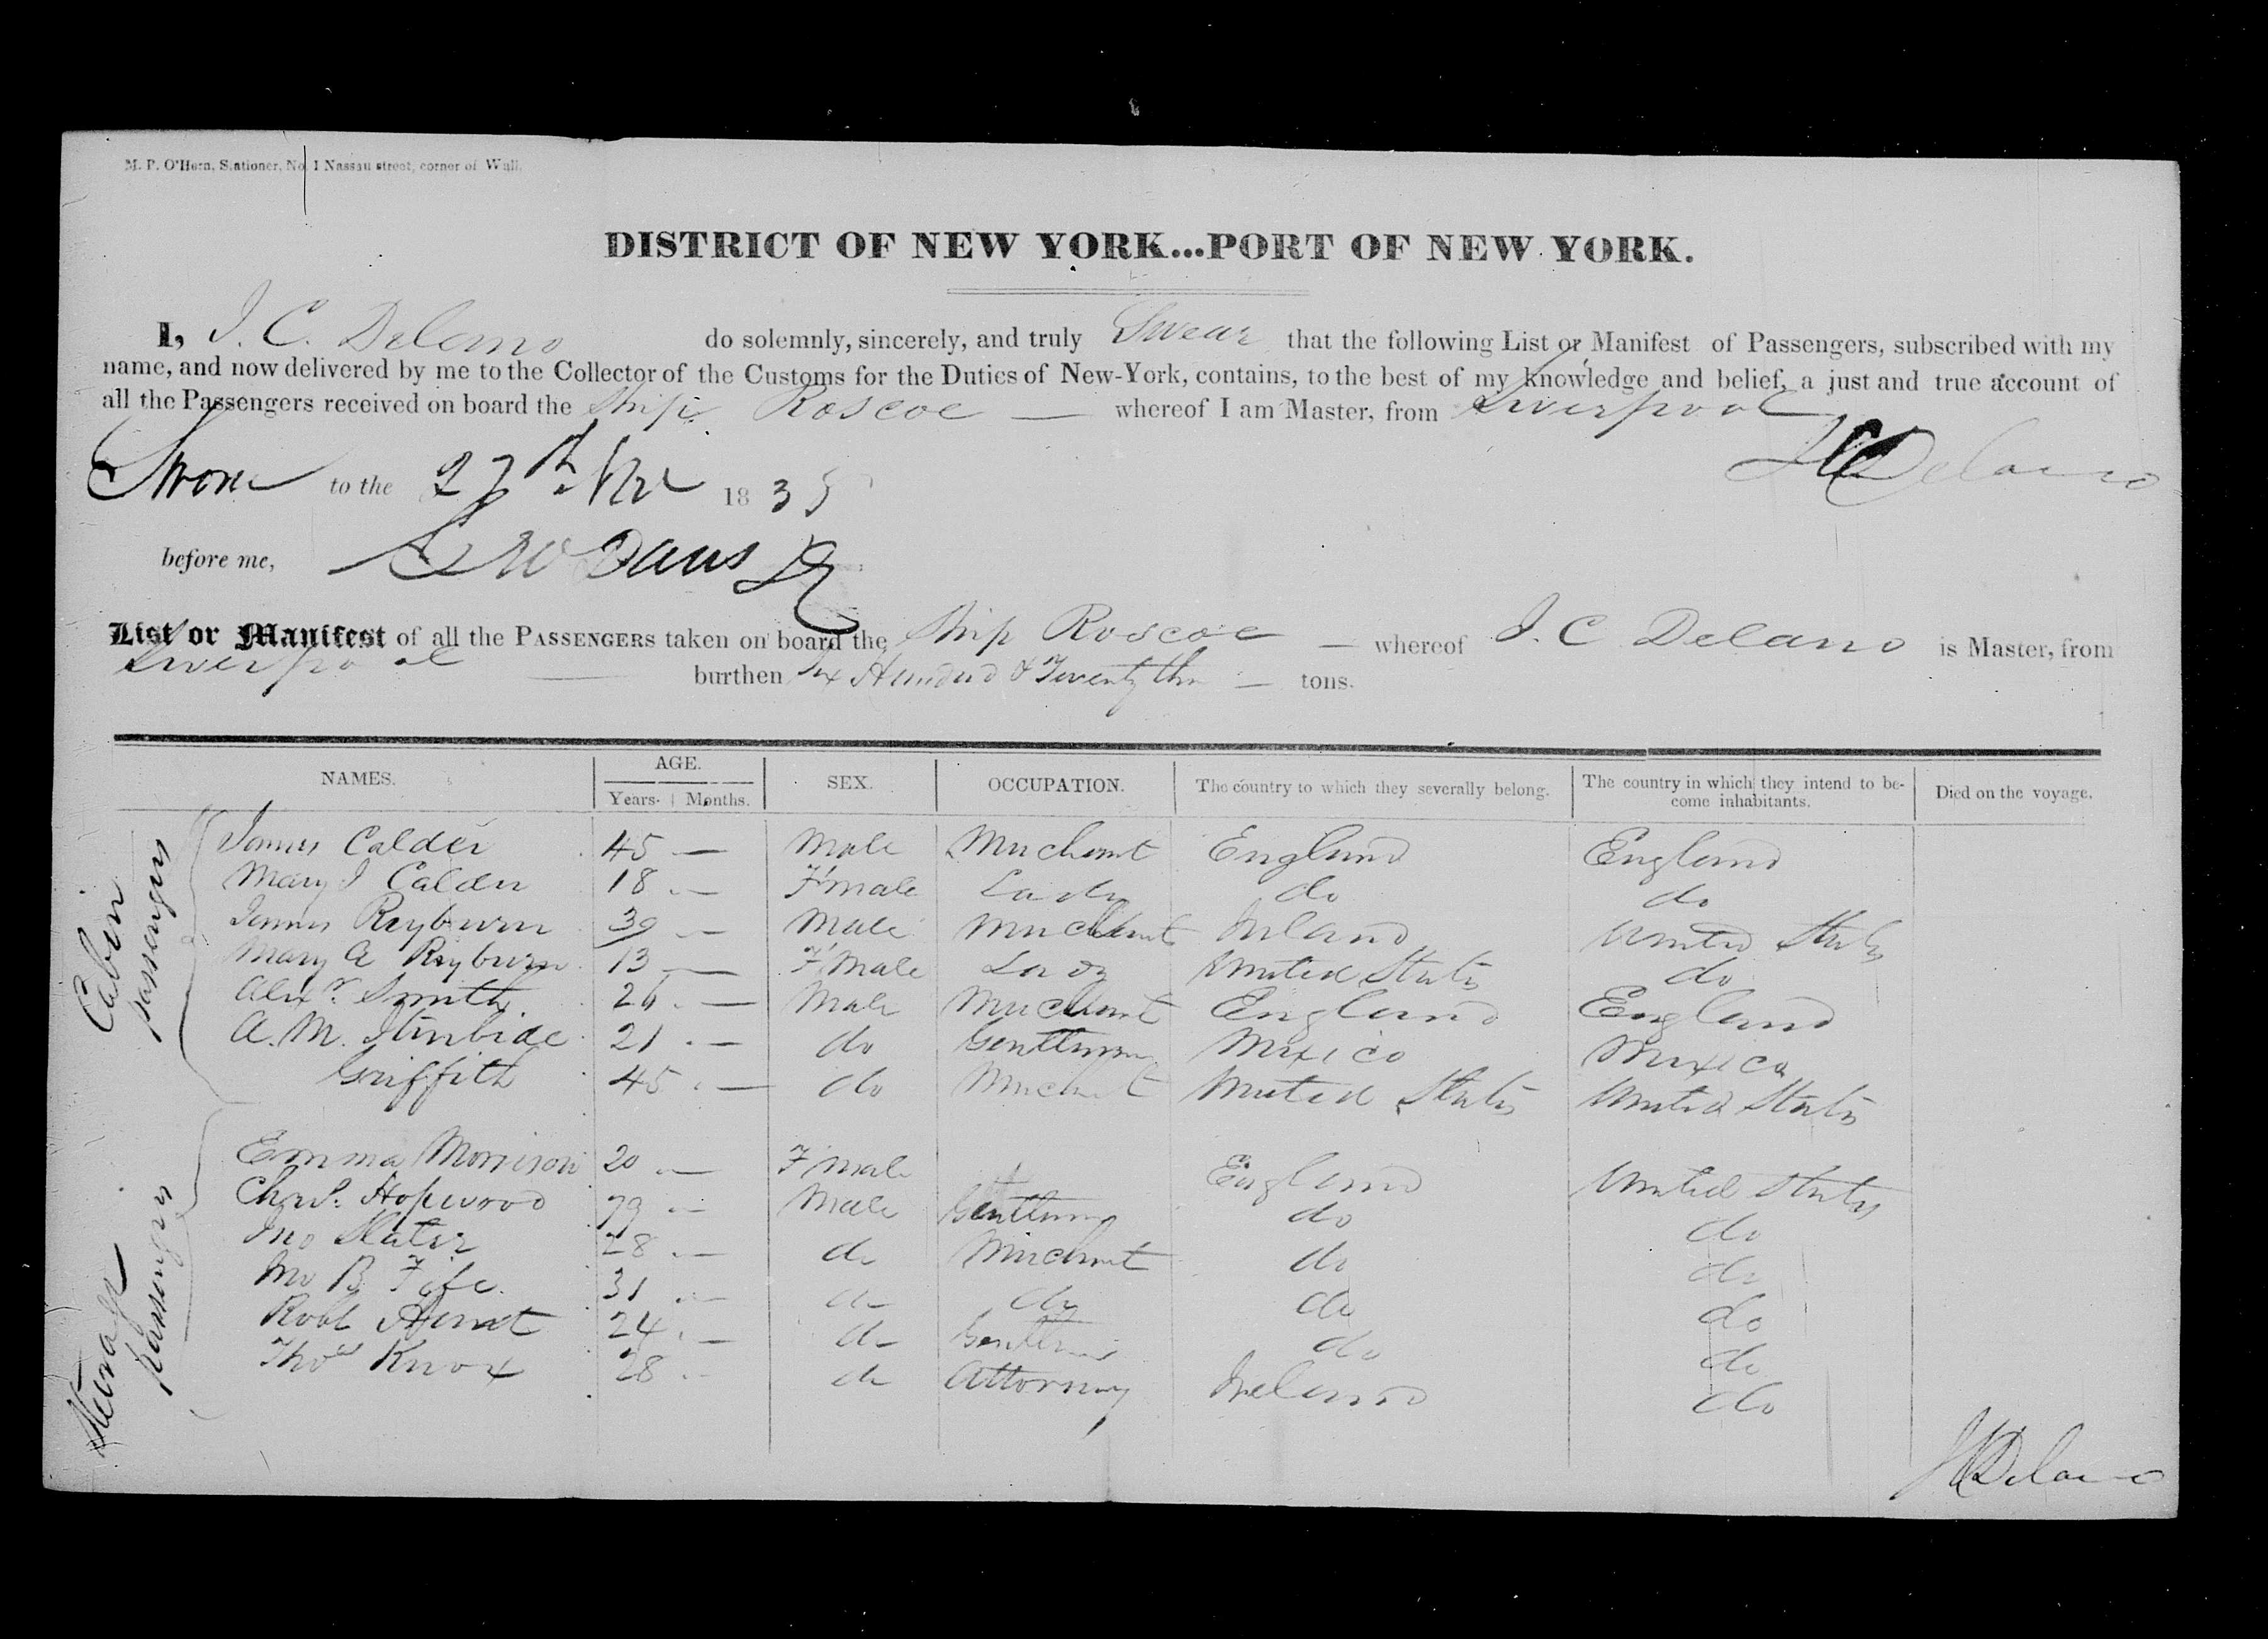 M. P. O'Hern, Stationer, No. 1 Nassau street, corner of Wall.
DISTRICT OF NEW YORK...PORT OF NEW YORK.
I, J. C. Delano do solemnly, sincerely, and truly Swear that the following List or Manifest of Passengers, subscribed with my
name, and now delivered by me to the Collector of the Customs for the Duties of New-York, contains, to the best of my knowledge and belief, a just and true account of
all the Passengers received on board the Ship Roscoe — whereof I am Master, from Liverpool
J C Delano
Sworn to the 27th Nov 1835
before me, Davis
List or Manifest of all the PASSENGERS taken on board the Ship Roscoe — whereof J. C Delano is Master, from
Liverpool — burthen Six Hundred & Twenty — tons.
NAMES. AGE. Years. Months. SEX. OCCUPATION. The country to which they severally belong. The country in which they intend to become inhabitants. Died on the voyage.
Cabin passengers
James Calder 45 — Male Merchant England England
Mary J Calder 18 — Female Lady do do
James Reyburn 39 — Male Merchant Ireland United States
Mary A Reyburn 13 — Female Lady United States do
Alexr. Smith 26 — Male Merchant England England
A. M. 21 — do Gentleman Mexico Mexico
Griffith 45 — do Merchant United States United States
Steerage Passengers
Emma Morrison 20 — Female England United States
Hopwood — Male Gentleman do do
Jno Slater 28 — do Merchant do do
Jno B Fife 31 — do do do do
Robt 24 — do Gentleman do do
Thos Knox 28 — do Attorney Ireland do
J C Delano